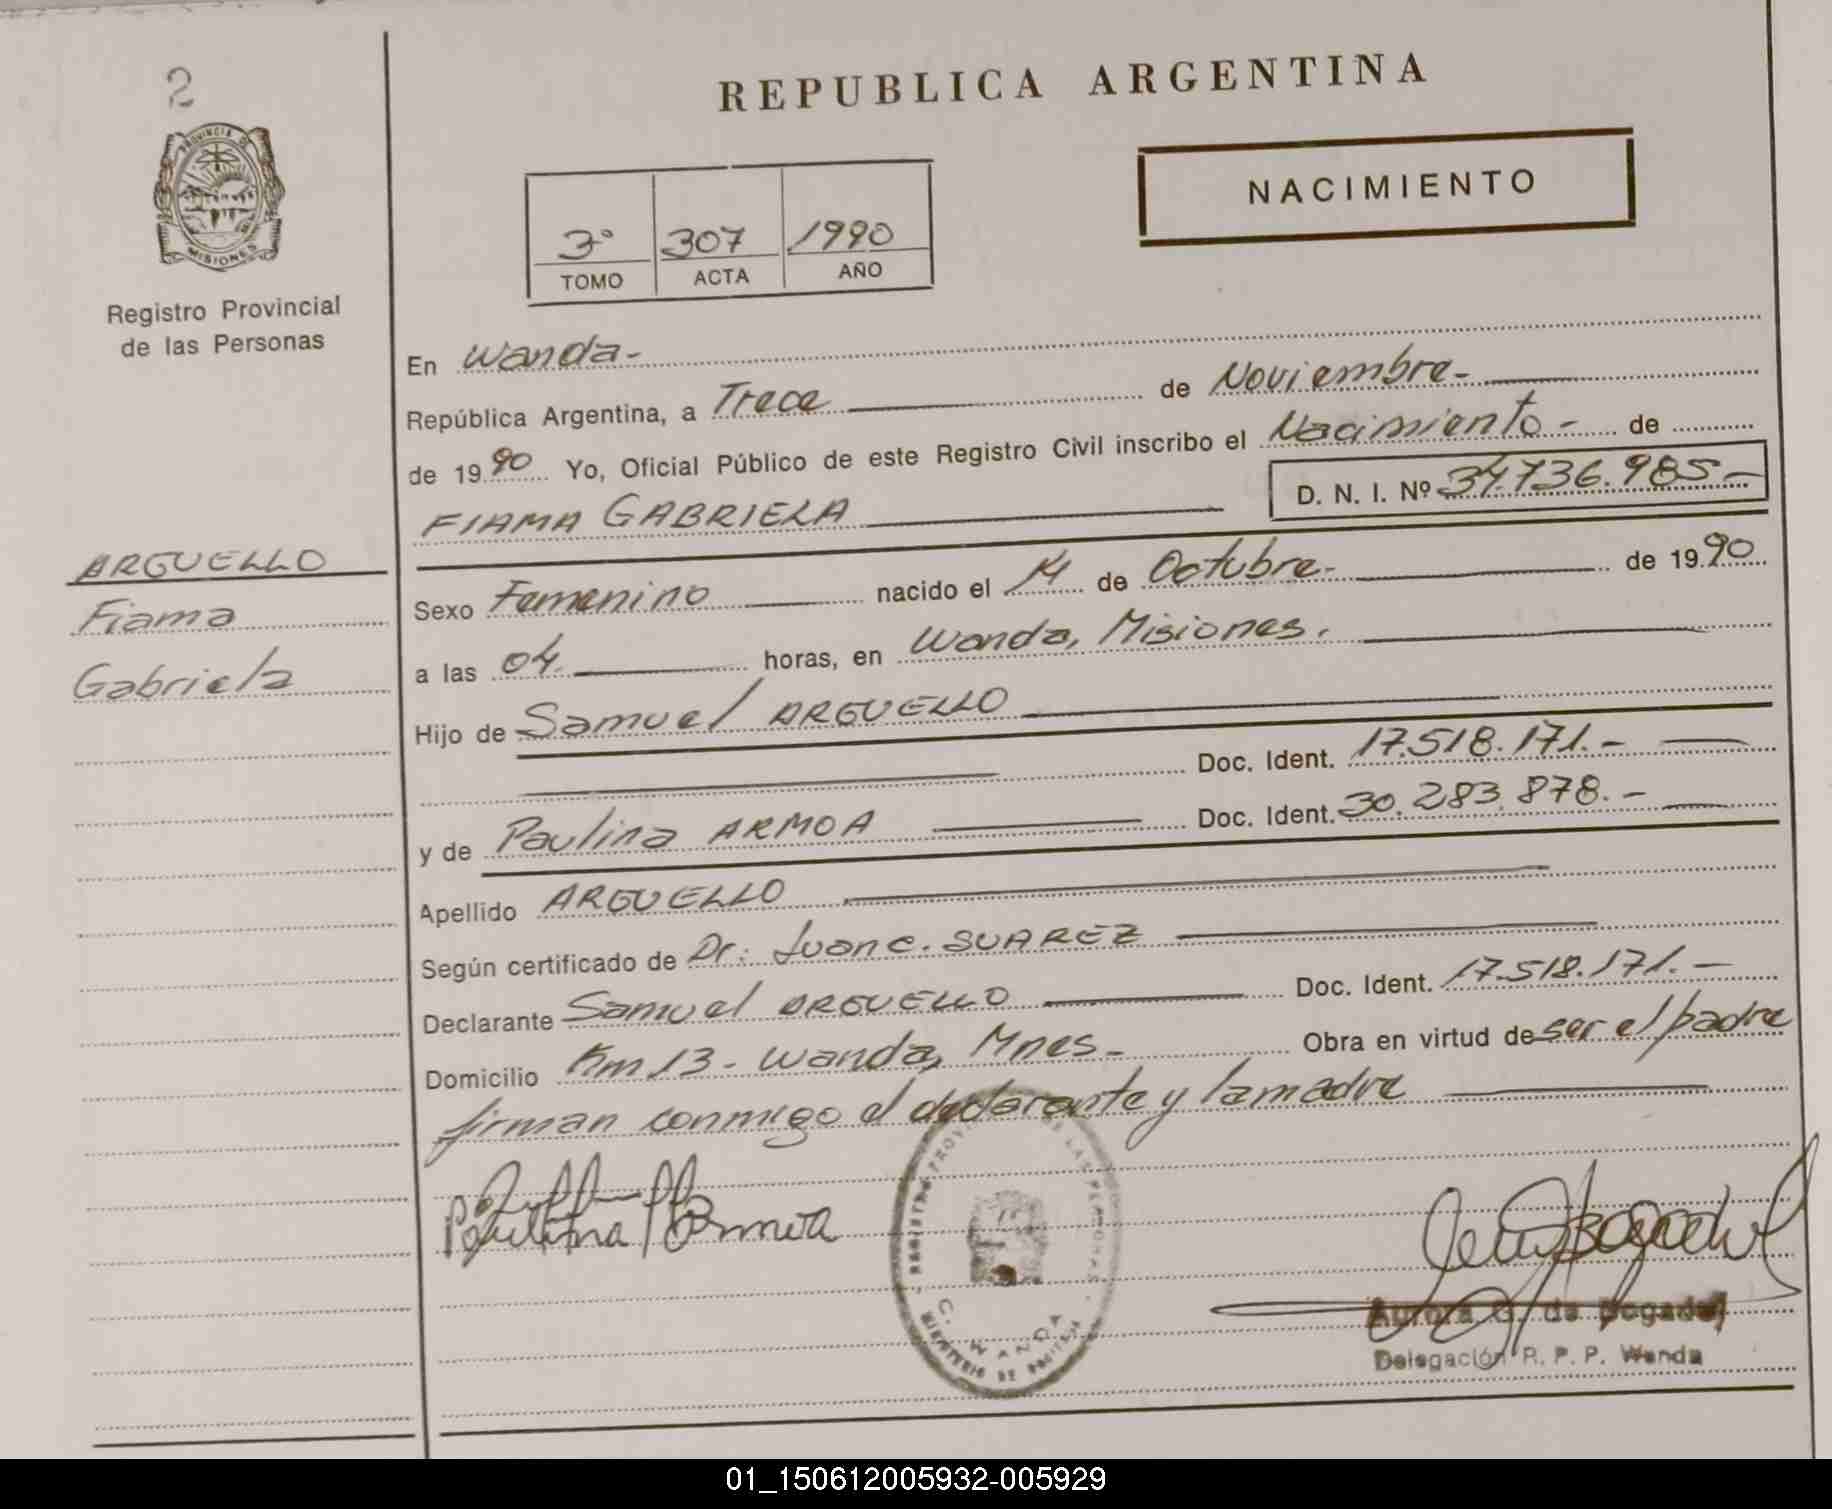 2
PROVINCIA DE
MISIONES
Registro Provincial
de las Personas
ARGUELLO
Fiama
Gabriela
REPUBLICA ARGENTINA
NACIMIENTO
3º 307 1990
TOMO ACTA AÑO
En Wanda-
República Argentina, a Trece de Noviembre-
de 1990 Yo, Oficial Público de este Registro Civil inscribo el Nacimiento- de
FIAMA GABRIELA D. N. I. Nº 34.736.985-
Sexo Femenino nacido el 14 de Octubre- de 1990
a las 04. horas, en Wanda, Misiones.
Hijo de Samuel ARGUELLO
Doc. Ident. 17.518.171.-
y de Paulina ARMOA Doc. Ident. 30.283.878.-
Apellido ARGUELLO
Según certificado de Dr: Juan C. SUAREZ
Declarante Samuel ARGUELLO Doc. Ident. 17.518.171.-
Domicilio Km 13 - Wanda, Mnes- Obra en virtud de ser el padre
firman conmigo el declarante y la madre
Paulina Armoa
WANDA
Aurora G. de Bogado
Delegación R. P. P. Wanda
01_150612005932-005929